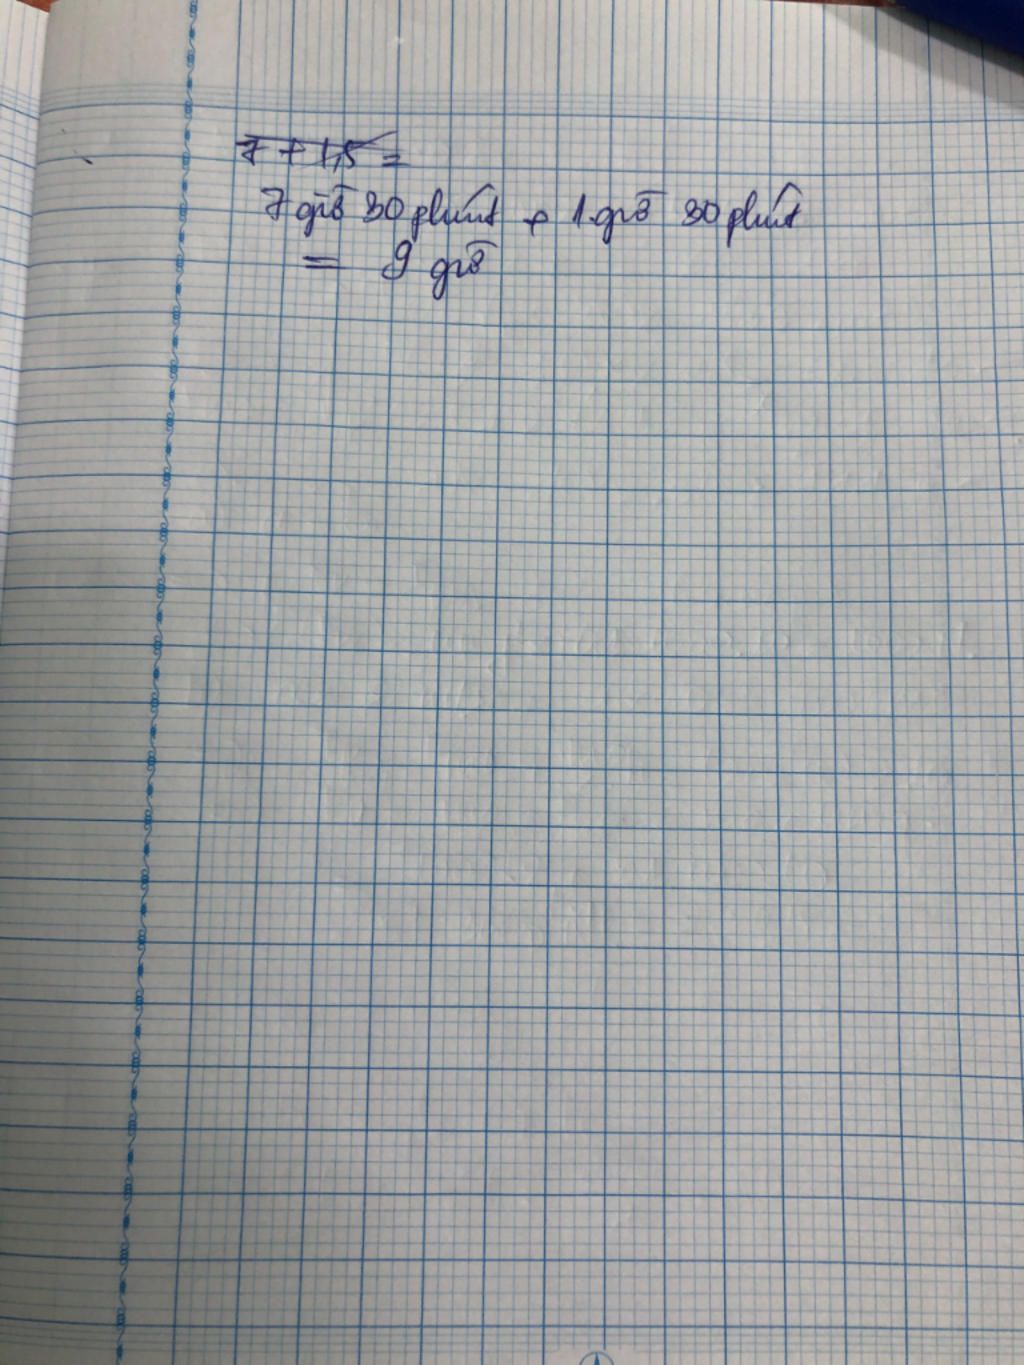 7 + 1,5 =
7 giờ 30 phút + 1 giờ 30 phút
= 9 giờ